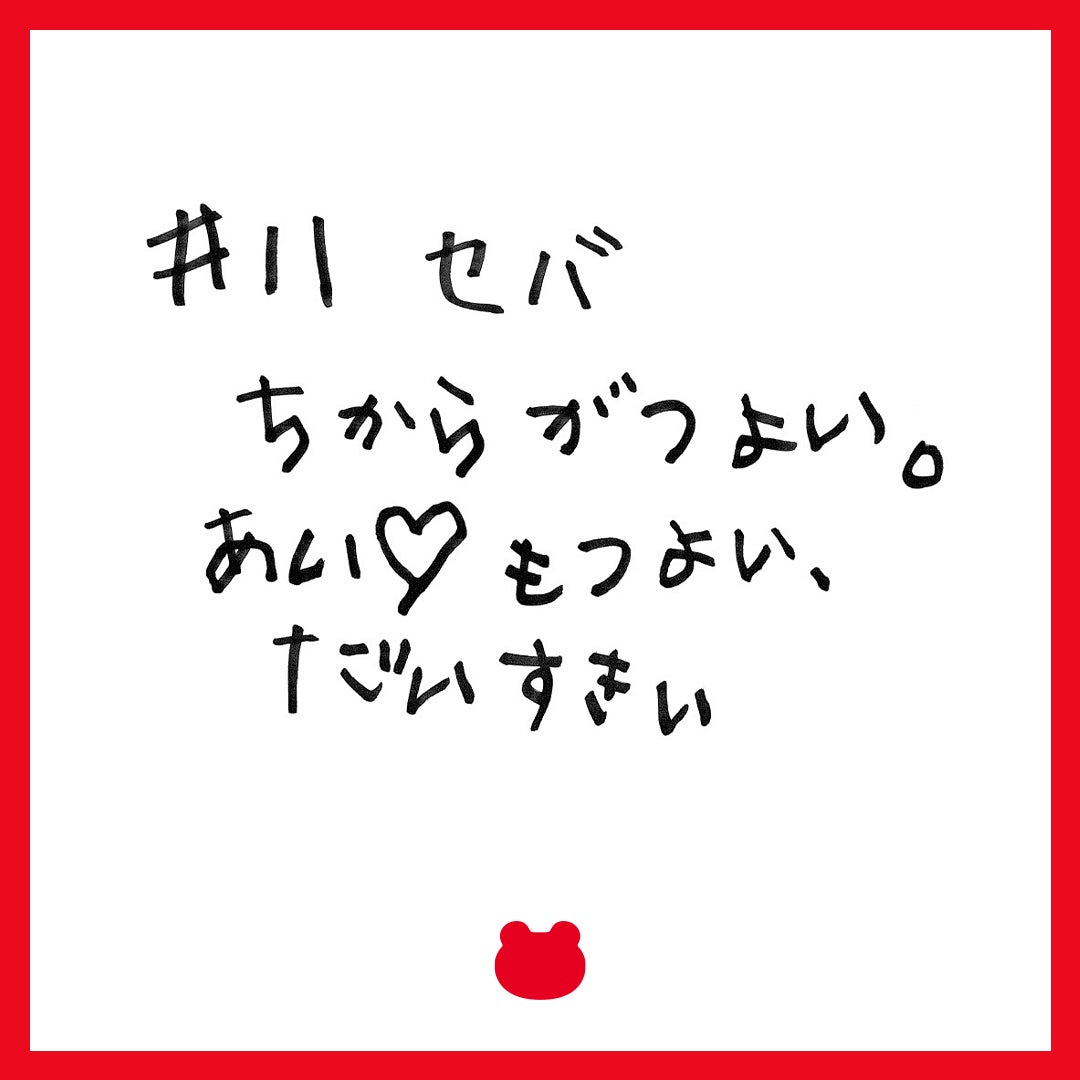 井川 セバ
ちからがつよい。
あい♡もつよい、
だいすきい